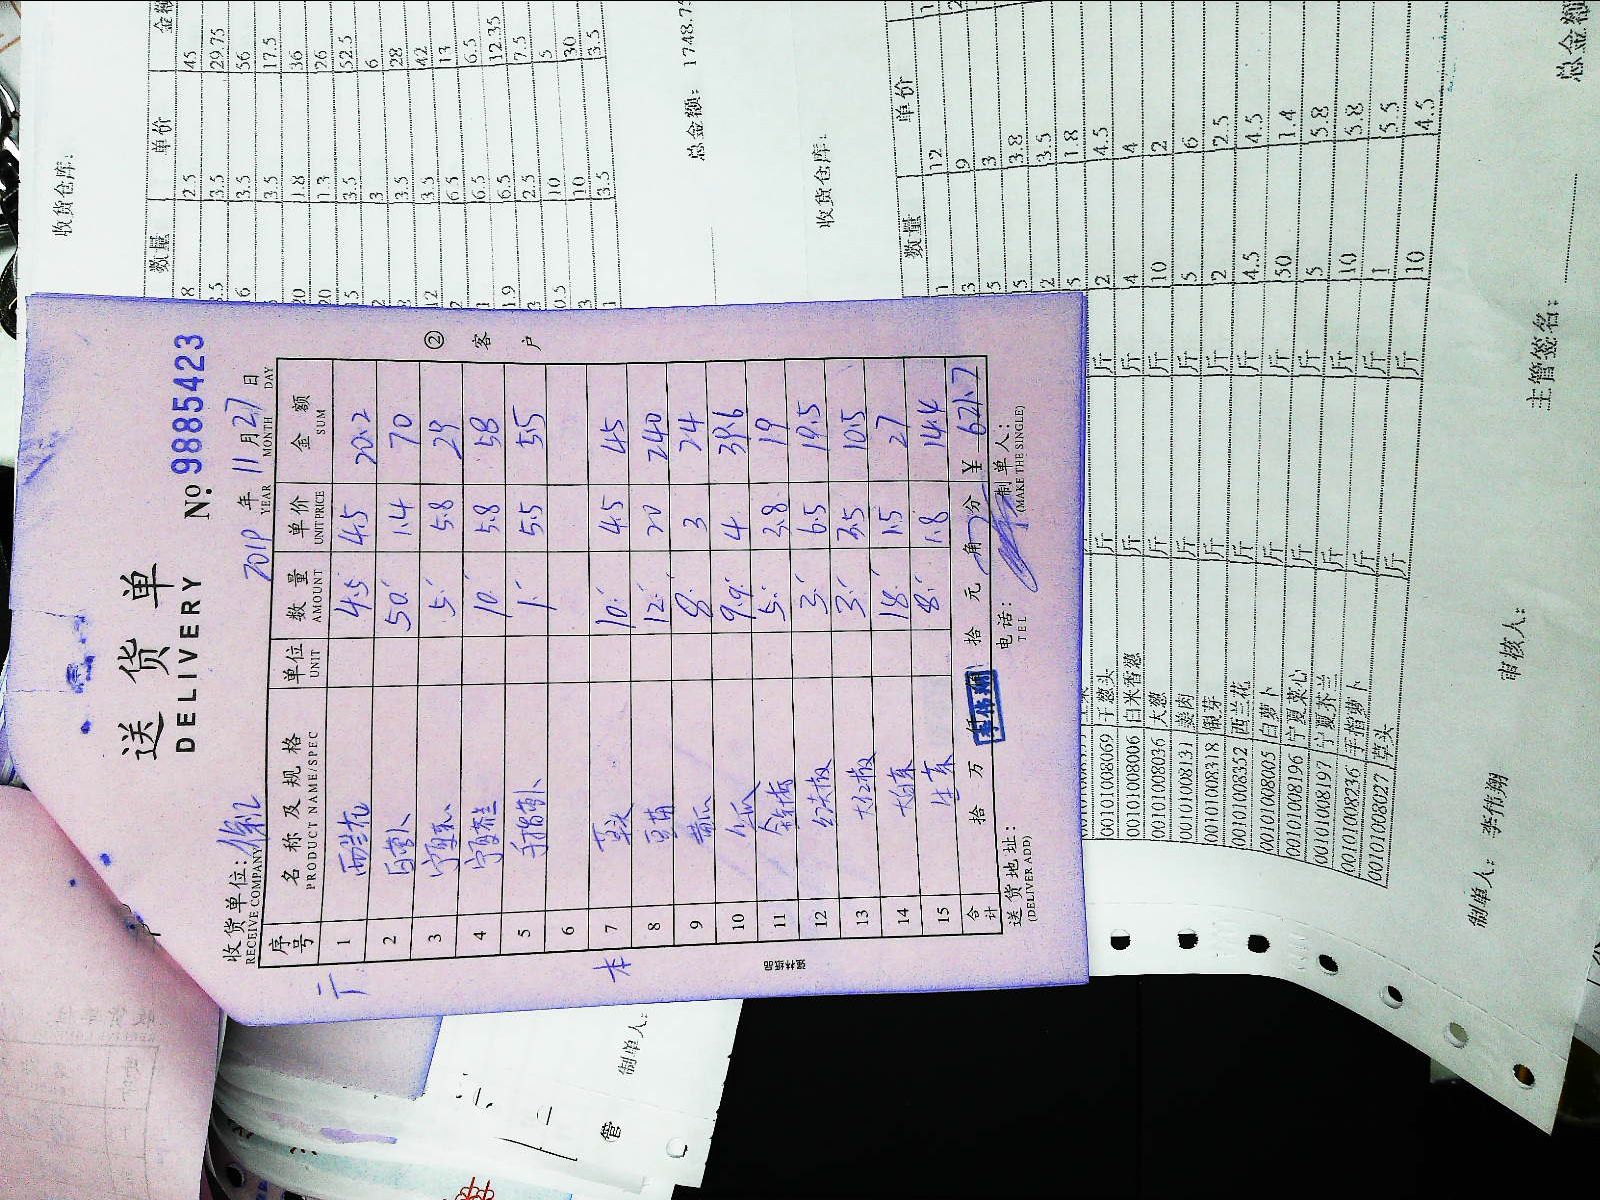 送货单
DELIVERY
No. 9885423
收货单位:
RECEIVE COMPANY
2019 年 11 月 27 日
YEAR MONTH DAY
序号 名称及规格 单位 数量 单价 金额
PRODUCT NAME/SPEC UNIT AMOUNT UNIT PRICE SUM
1 西兰花 4.5 4.5 20.2
2 白萝卜 50 1.4 70
3 宁夏菜心 5 5.8 29
4 宁夏芥兰 10 5.8 58
5 手指萝卜 1 5.5 55
6
7 10 4.5 45
8 12 20 240
9 黄瓜 8 3 24
10 9.9 4 39.6
11 5 3.8 19
12 3 6.5 19.5
13 3 3.5 10.5
14 18 1.5 27
15 生菜 8 1.8 14.4
合计 拾 万 拾 元 角 分 ¥ 621.7
送货地址:
(DELIVER ADD)
电话:
TEL
制单人:
(MAKE THE SINGLE)
②客户
收货仓库:
数量 单价 金额
8 2.5 45
3.5 29.75
6 3.5 56
3.5 17.5
20 1.8 36
20 1.3 26
3.5 52.5
2 3 6
3.5 28
12 3.5 42
2 6.5 13
1 6.5 6.5
1.9 6.5 12.35
3 2.5 7.5
0.5 10 5
3 10 30
1 3.5 3.5
总金额: 1748.7
收货仓库:
数量 单价
1 12
3 9
5 3
5 3.8
2 3.5
5 1.8
001010008069 干葱头 斤 斤 2 4.5
00101008006 白米香葱 斤 斤 4 4
00101008036 大葱 斤 斤 10 2
00101008131 姜肉 斤 斤 5 6
00101008318 银芽 斤 斤 2 2.5
00101008352 西兰花 斤 斤 4.5 4.5
00101008005 白萝卜 斤 斤 50 1.4
00101008196 宁夏菜心 斤 斤 5 5.8
00101008197 宁夏芥兰 斤 斤 10 5.8
00101008236 手指萝卜 斤 斤 1 5.5
00101008027 草头 斤 斤 10 4.5
总金额
制单人: 李伟翔
审核人:
主管签名:
制单人:
管